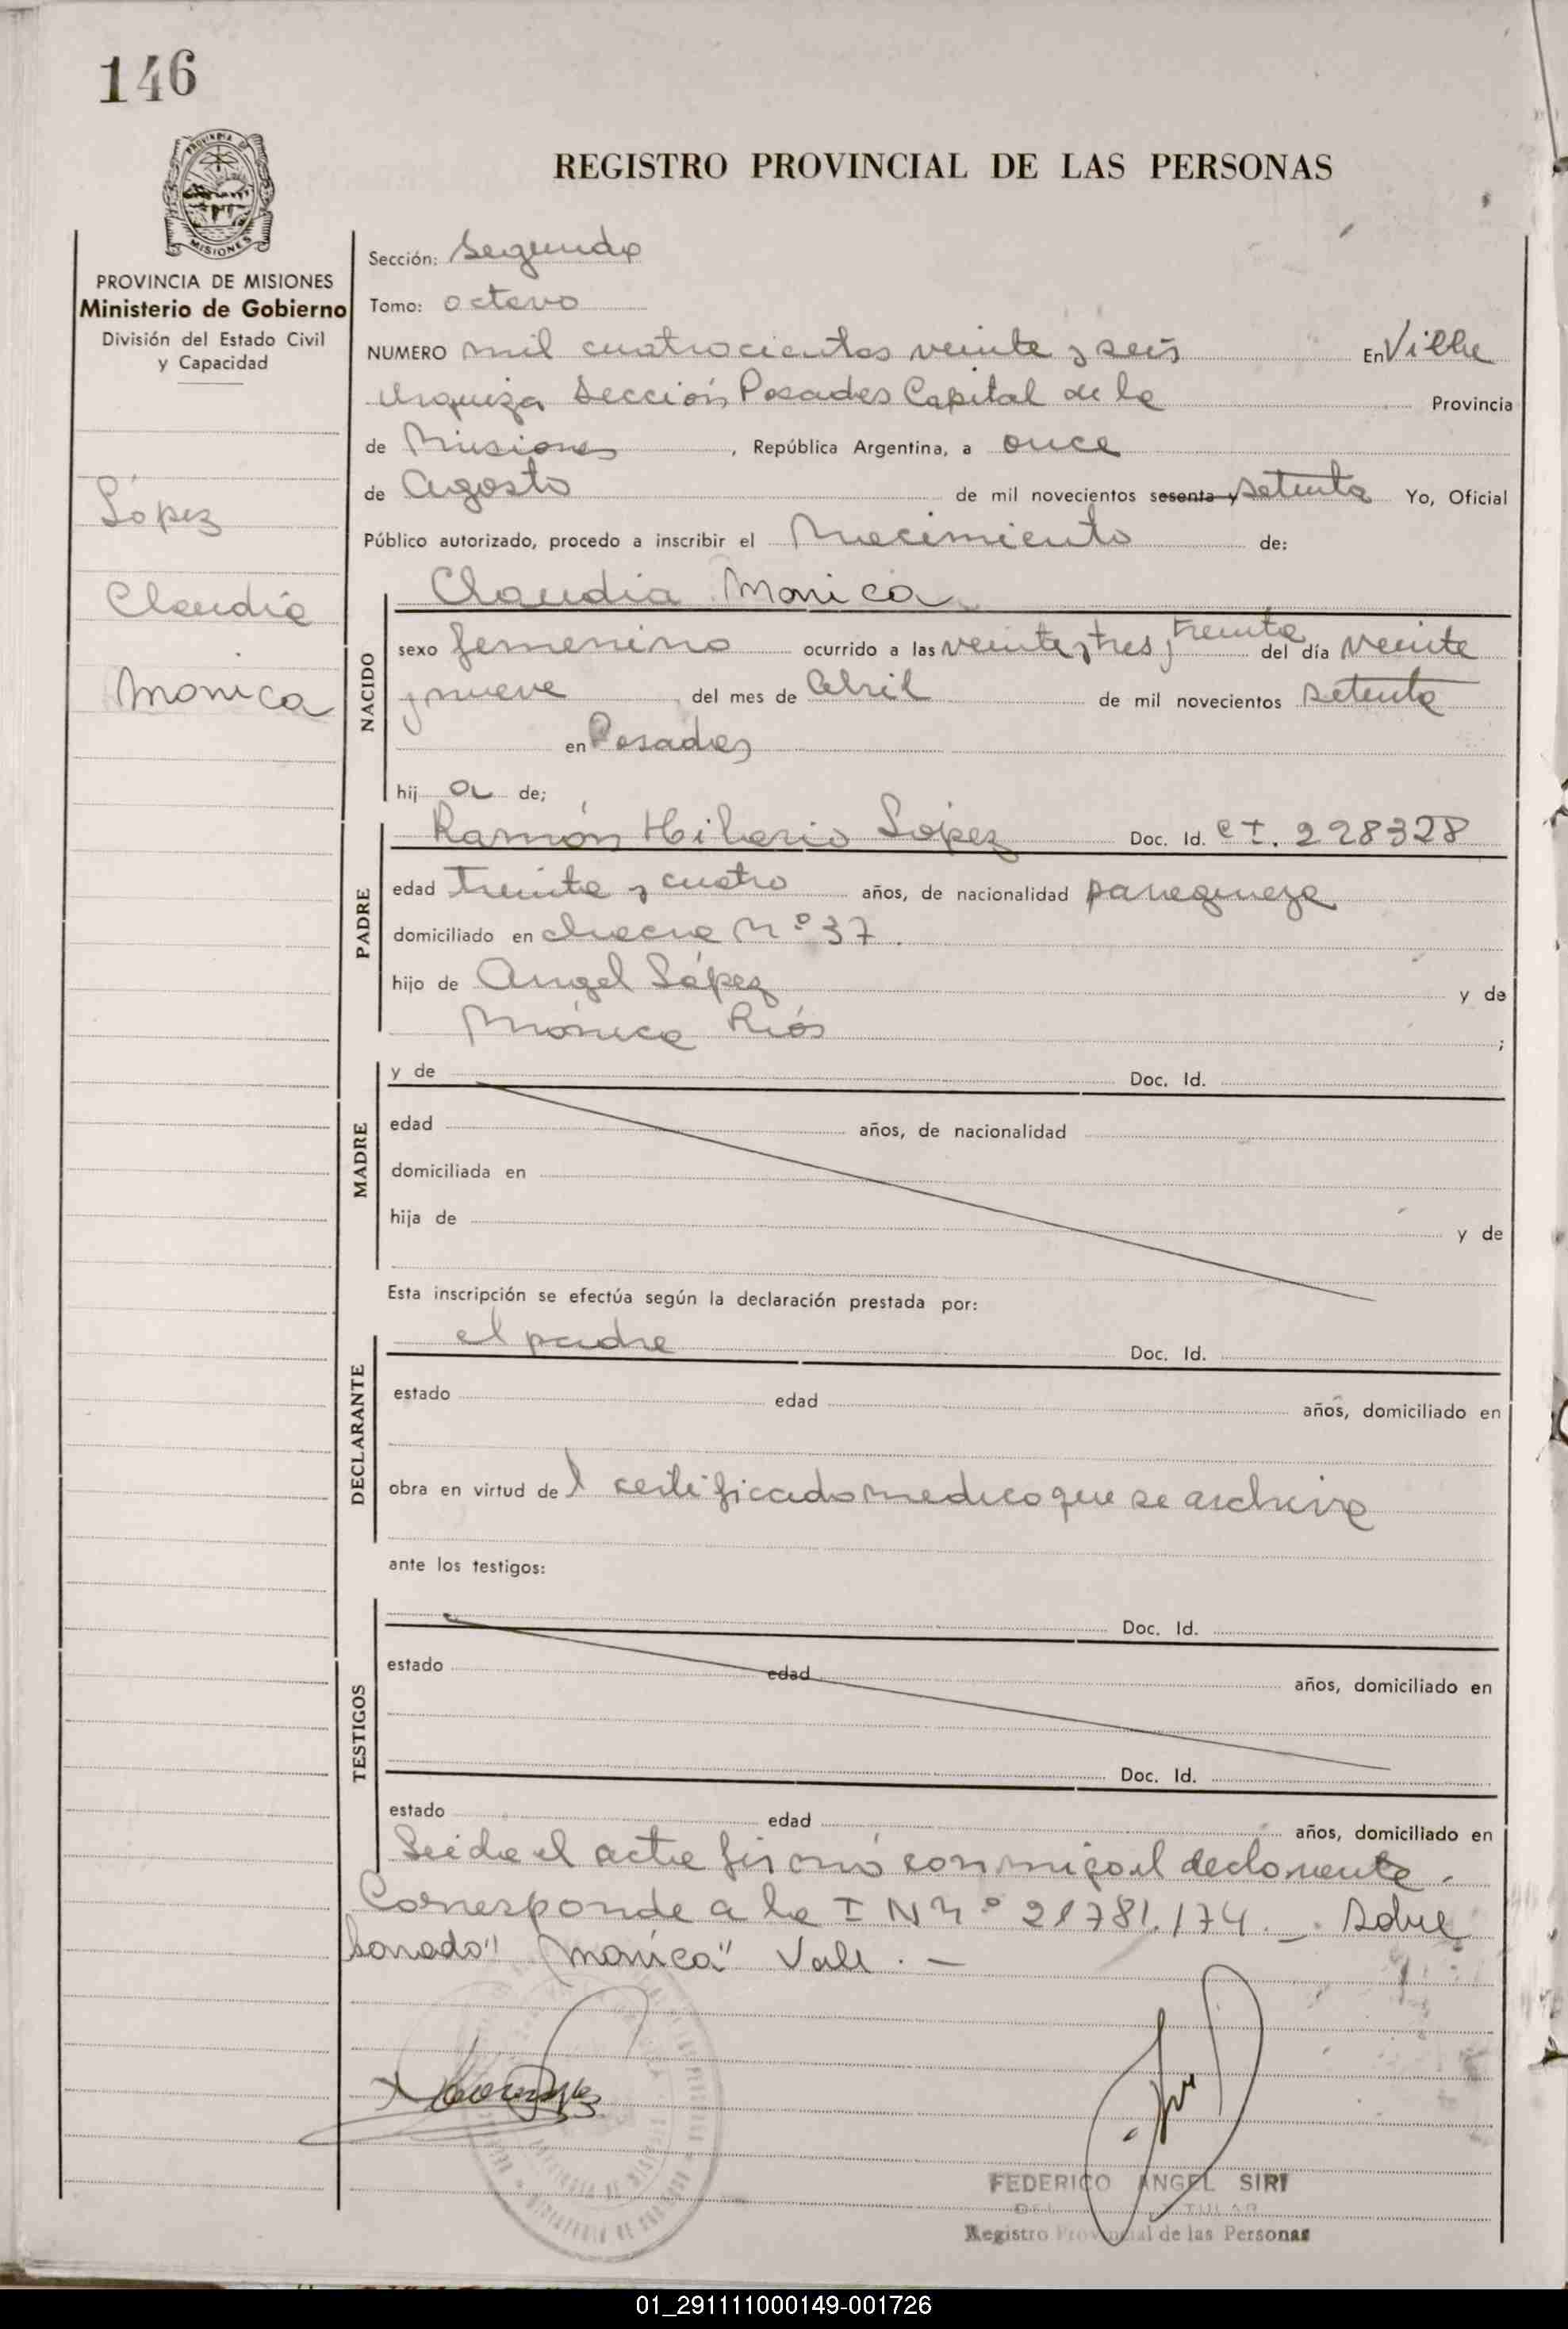 146
PROVINCIA DE MISIONES
REGISTRO PROVINCIAL DE LAS PERSONAS
PROVINCIA DE MISIONES
Ministerio de Gobierno
División del Estado Civil
y Capacidad
López
Claudia
Monica
Sección: Segunda
Tomo: octavo
NUMERO mil cuatrocientos veinte y seis En Villa
Urquiza Sección Posadas Capital de la Provincia
de Misiones, República Argentina, a once
de Agosto de mil novecientos sesenta y setenta Yo, Oficial
Público autorizado, procedo a inscribir el Nacimiento de:
NACIDO
Claudia Monica
sexo femenino ocurrido a las veinte y tres y treinta del día veinte
y nueve del mes de Abril de mil novecientos setenta
en Posadas
hij a de;
PADRE
Ramón Hilario López Doc. Id. C I. 228328
edad treinta y cuatro años, de nacionalidad paraguaya
domiciliado en chacra Nº 37.
hijo de Angel López y de
Mónica Ríos ;
MADRE
y de Doc. Id.
edad años, de nacionalidad
domiciliada en
hija de y de
Esta inscripción se efectúa según la declaración prestada por:
DECLARANTE
el padre Doc. Id.
estado edad años, domiciliado en
obra en virtud del certificado medico que se archiva
ante los testigos:
TESTIGOS
Doc. Id.
estado edad años, domiciliado en
Doc. Id.
estado edad años, domiciliado en
Leida el acta firmó conmigo el declarante.
Corresponde a la I N Nº 21781.174. _ Sobre
borrado" Monica" Vale. —
FEDERICO ANGEL SIRI
Registro Provincial de las Personas
01_291111000149-001726